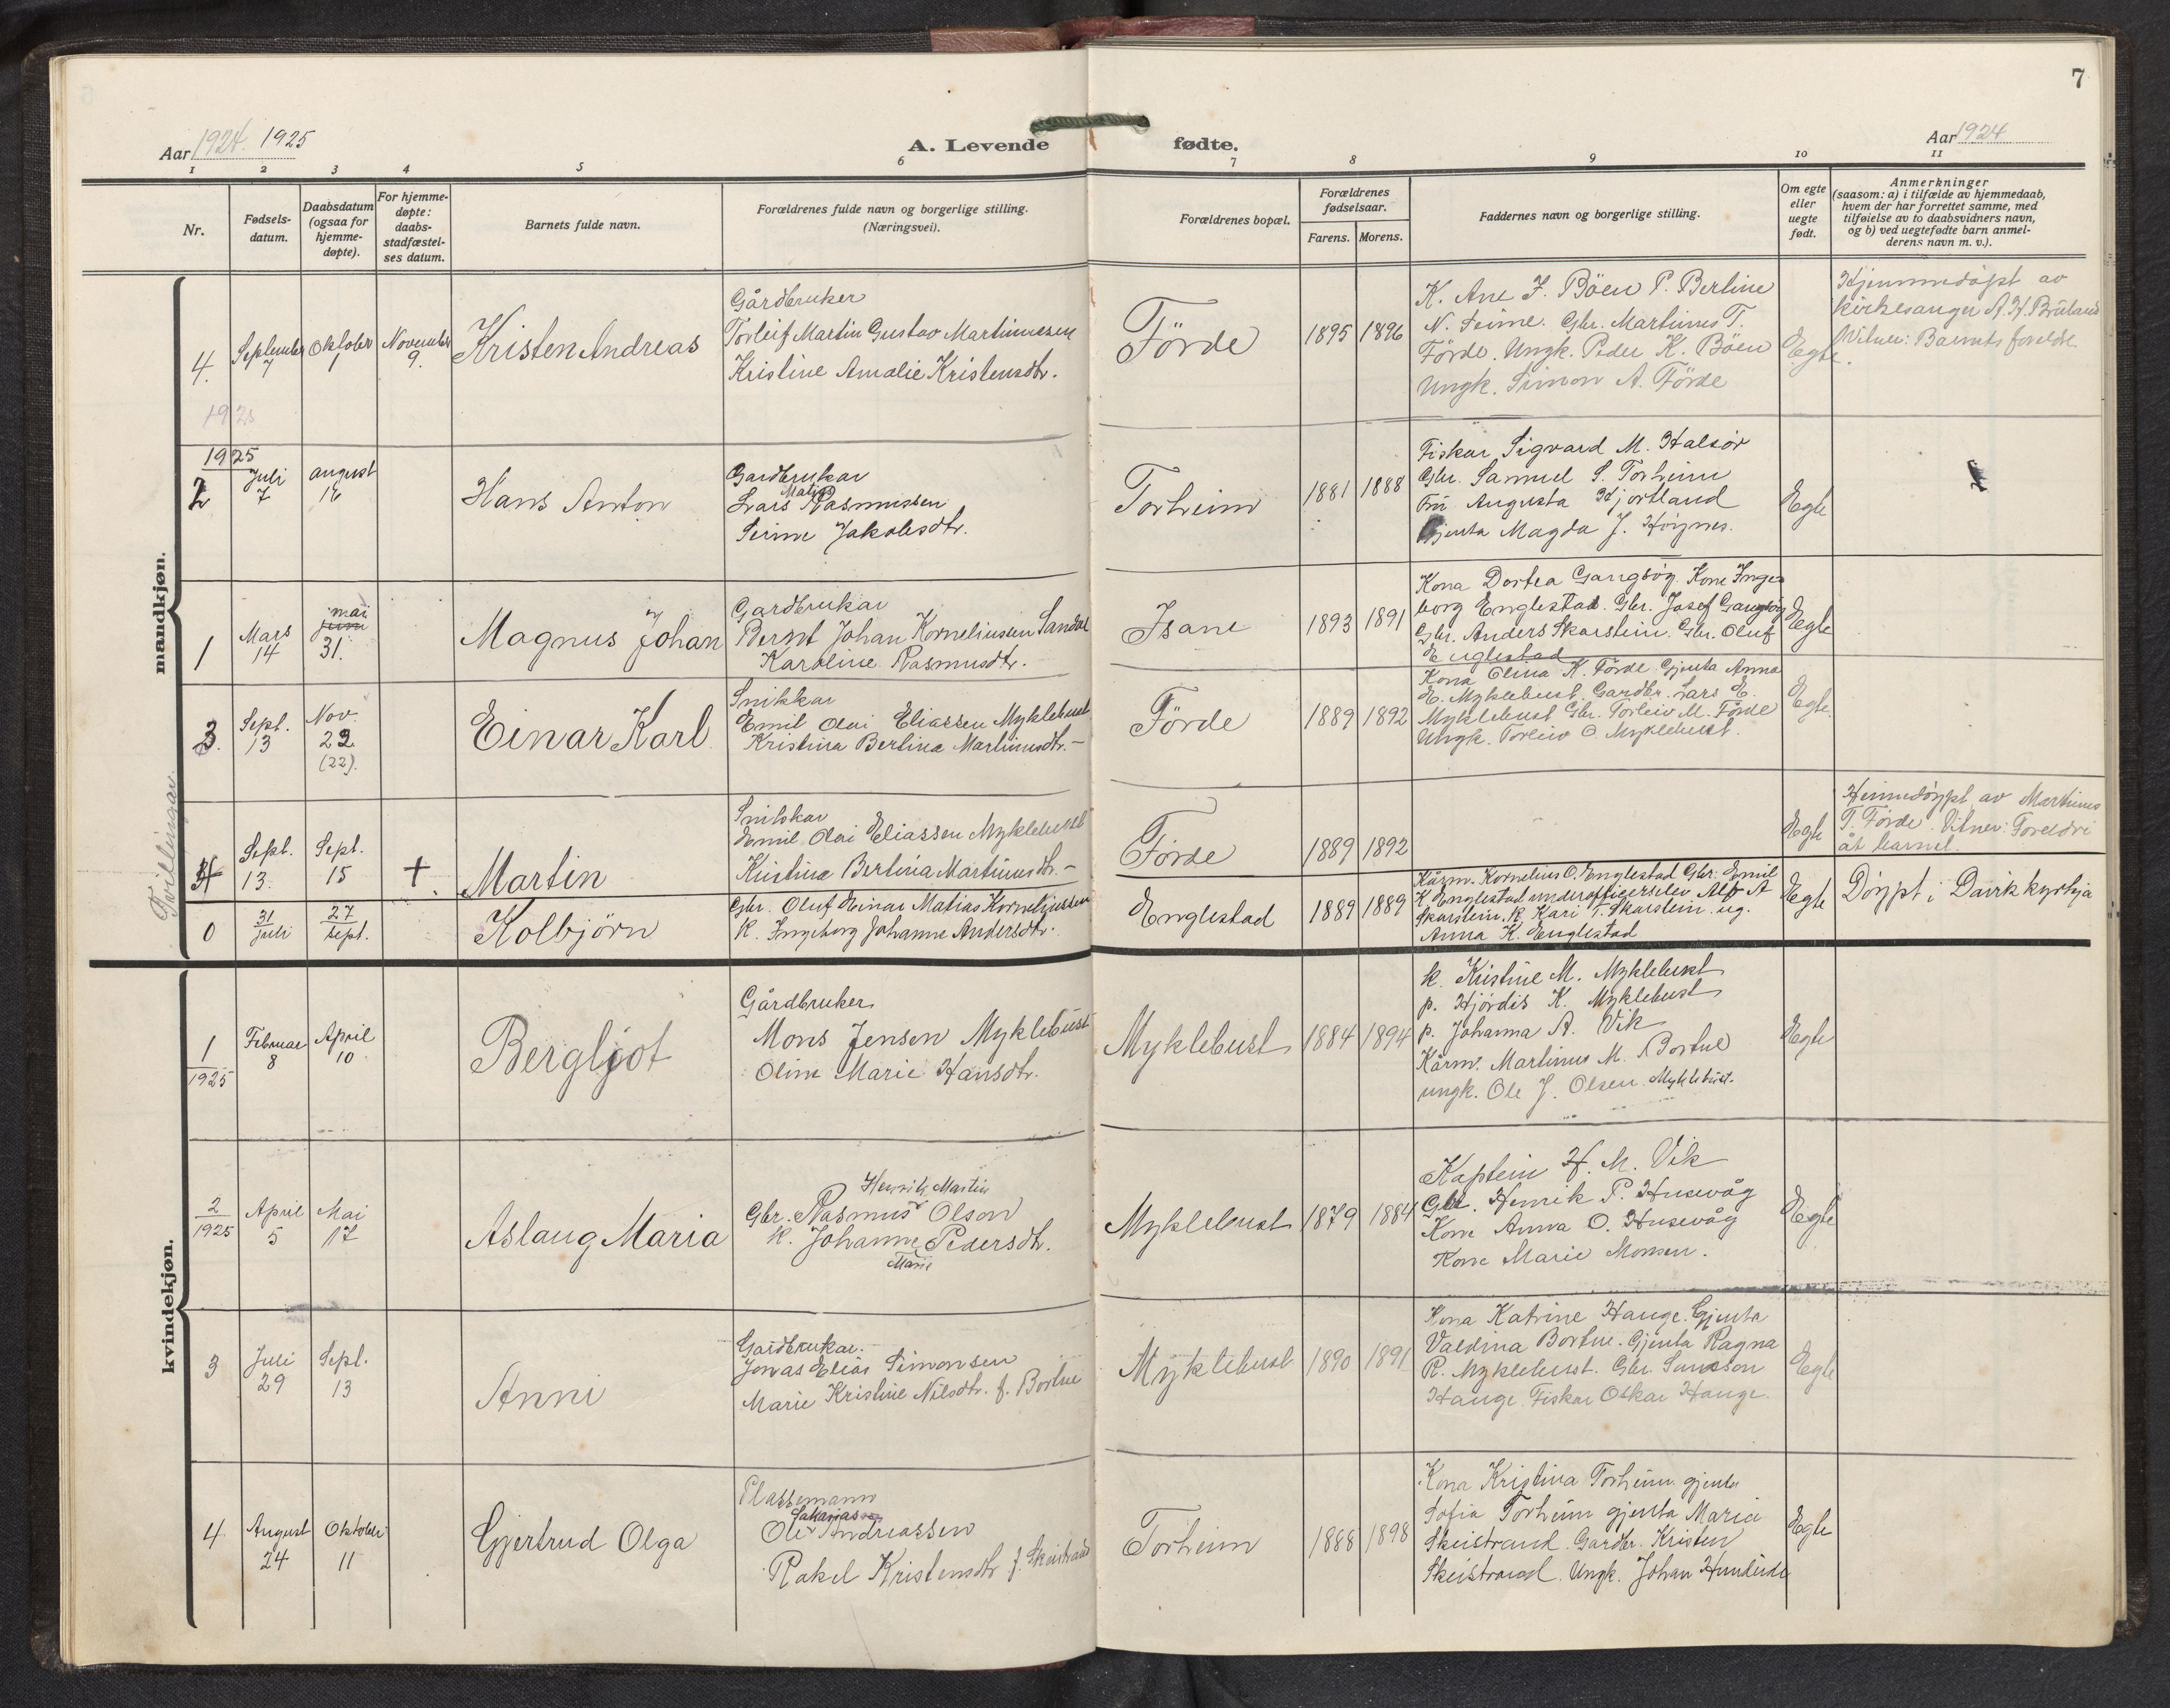 7
Aar 1924. 1925
A. Levende fødte.
Aar 1924
1 2 3 4 5 6 7 8 9 10 11
Nr.
Fødsels-
datum.
Daabsdatum
(ogsaa for
hjemme-
døpte).
For hjemme-
døpte:
daabs-
stadfæstel-
ses datum.
Barnets fulde navn.
Forældrenes fulde navn og borgerlige stilling.
(Næringsvei).
Forældrenes bopæl.
Forældrenes
fødselsaar.
Farens. Morens.
Faddernes navn og borgerlige stilling.
Om egte
eller
uegte
født.
Anmerkninger
(saasom: a) i tilfælde av hjemmedaab,
hvem der har forrettet samme, med
tilføielse av to daabsvidners navn,
og b) ved uegtefødte barn anmel-
derens navn m. v.).
mandkjøn.
4.
September
7
Oktober
1
November
9.
Kristen Andreas
Gårdbruker
Torleif Martin Gustav Martinussen
Kristine Amalie Kristensdtr.
Förde
1895 1896
K. Ane J. Böen P. Berline
N. Feime. Gbr. Martinus T.
Förde. Ungk. Peder K. Böen
Ungk. Simon A. Förde
Egte.
Hjemmedöpt av
kirkesanger A. H. Bruland
Vitner: Barnets foreldre
1925
1925
2
Juli
7
august
16
Hans Anton
Gardbrukar
Matias
Lars Rasmussen
Serine Jakobsdtr.
Torheim
1881 1888
Fiskar Sigvard M. Halsör
Gbr. Samuel S. Torheim
Fru Augusta Hjortland
Gjenta Magda J. Höynes.
Egte
1
Mars
14
mai
juni
31.
Magnus Johan
Gardbrukar
Bernt Johan Korneliussen Sandal
Karoline Rasmusdtr.
Isane
1893 1891
Kona Dortea Gangsöy. Kone Inge-
borg Englestad. Gbr. Josef Gangsöy
Gbr. Anders Skarstein. Gbr. Oluf
Englestad
Egte
3.
Sept.
13
Nov.
22
(22).
Einar Karl
Snikkar
Emil Olai Eliassen Myklebust
Kristina Berlina Martinusdtr. –
Förde
1889 1892
Kona Olina K. Förde. Gjenta Anna
E. Myklebust. Gardbr. Lars E.
Myklebust Gbr. Torleiv M. Förde
Ungk. Torleiv O. Myklebust.
Egte.
Tvillingar.
4
Sept.
13.
Sept.
15
+
Martin
Snikkar
Emil Olai Eliassen Myklebust
Kristina Bertina Martinusdtr. –
Förde
1889 1892
Egte
Heimedöypt av Martinus
T. Förde. Vitner: Foreldri
åt barnet.
0
31
Juli
27
sept.
Kolbjörn
Gbr. Oluf Einar Matias Korneliussen
K. Ingeborg Johanne Andersdtr.
Englestad
1889 1889
Kårm. Kornelius O. Englestad Gbr. Emil
K. Englestad underofficerselev Alf A
Skarstein. K. Kari T. Skarstein. ug.
Anna K. Englestad
Egte
Döypt i Davik kyrkja
kvindekjøn.
1
1925
Februar
8
April
10
Bergljot
Gårdbruker
Mons Jensen Myklebust
Oline Marie Hansdtr.
Myklebust
1884 1894
k. Kristine M. Myklebust
p. Hjördis K. Myklebust
p. Johanna A. Vik
Kårm. Martinus M. Bortne
ungk. Ole J. Olsen Myklebust.
Egte
2
1925
April
5
Mai
17
Aslaug Maria
Henrik Martin
Gbr. Rasmus Olson
k. Johanne Pedersdtr.
Marie
Myklebust
1879 1884
Kaptein H. M. Vik
Gbr. Henrik P. Husevåg
Kone Anna O. Husevåg
Kone Marie Monsen.
Egte
3
Juli
29
Sept.
13
Anni
Gardbrukar.
Jonas Elias Simonsen
Marie Kristine Nilsdtr. f. Bortne
Myklebust
1890 1891
Kona Katrine Hauge. Gjenta
Valdina Bortne. Gjenta Ragna
R. Myklebust. Gbr. Samson
Hauge. Fiskar Oskar Hauge.
Egte
4
August
24
Oktober
11
Gjertrud Olga
Plassemann
Sakarias
Ole Andreassen
Rakel Kristensdtr f. Skeistrand
Torheim
1888 1898
Kona Kristina Torheim. gjenta
Sofia Torheim gjenta Maria
Skeistrand. Gardbr. Kristen
Skeistrand. Ungk. Johan Hundeide
Egte